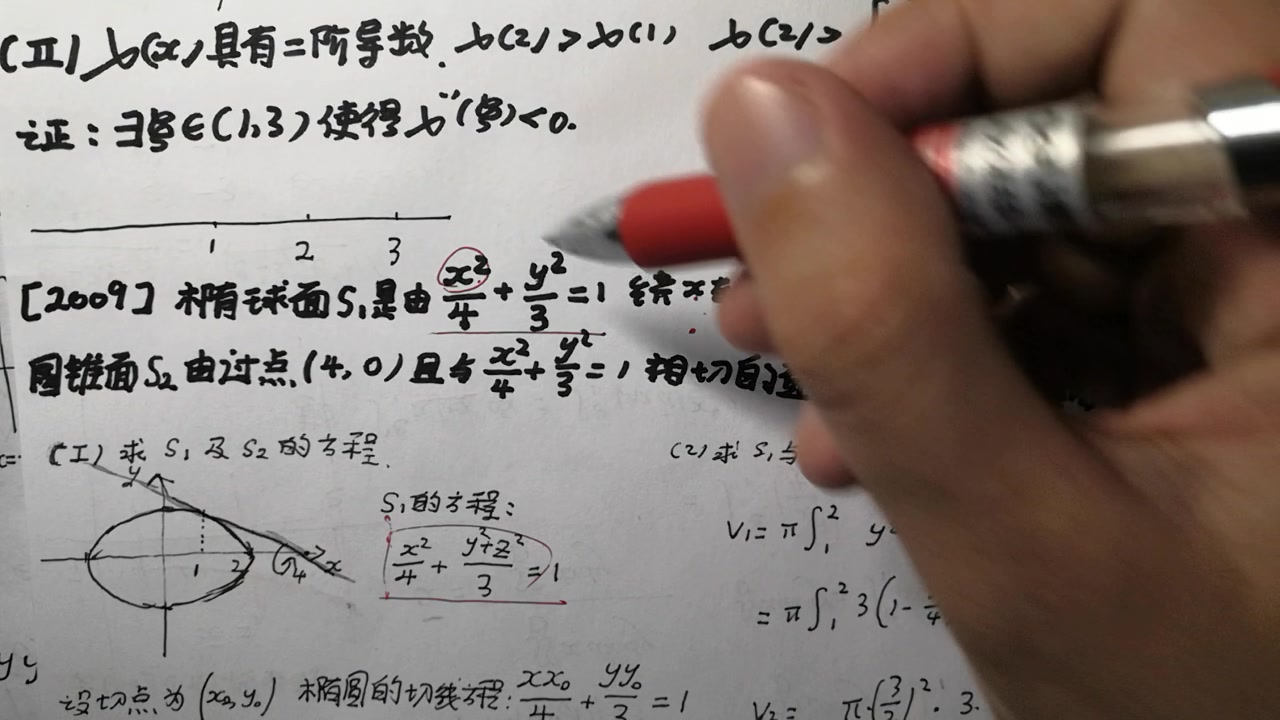 (II) f(x)具有二阶导数. f(2)>f(1) f(2)>
证:∃ξ∈(1,3)使得f''(ξ)<0.
1 2 3
[2009] 椭球面S₁是由 x²/4 + y²/3 = 1 绕x
圆锥面S₂由过点(4,0)且与 x²/4 + y²/3 = 1 相切的
(I) 求 S₁ 及 S₂ 的方程.
(2) 求 S₁与
y
1 2 4 x
S₁的方程:
x²/4 + (y²+z²)/3 = 1
V₁ = π∫₁² y
= π∫₁² 3(1-
yy
设切点为 (x₀, y₀) 椭圆的切线方程: xx₀/4 + yy₀/3 = 1
V₂ = π·(3/2)²·3.